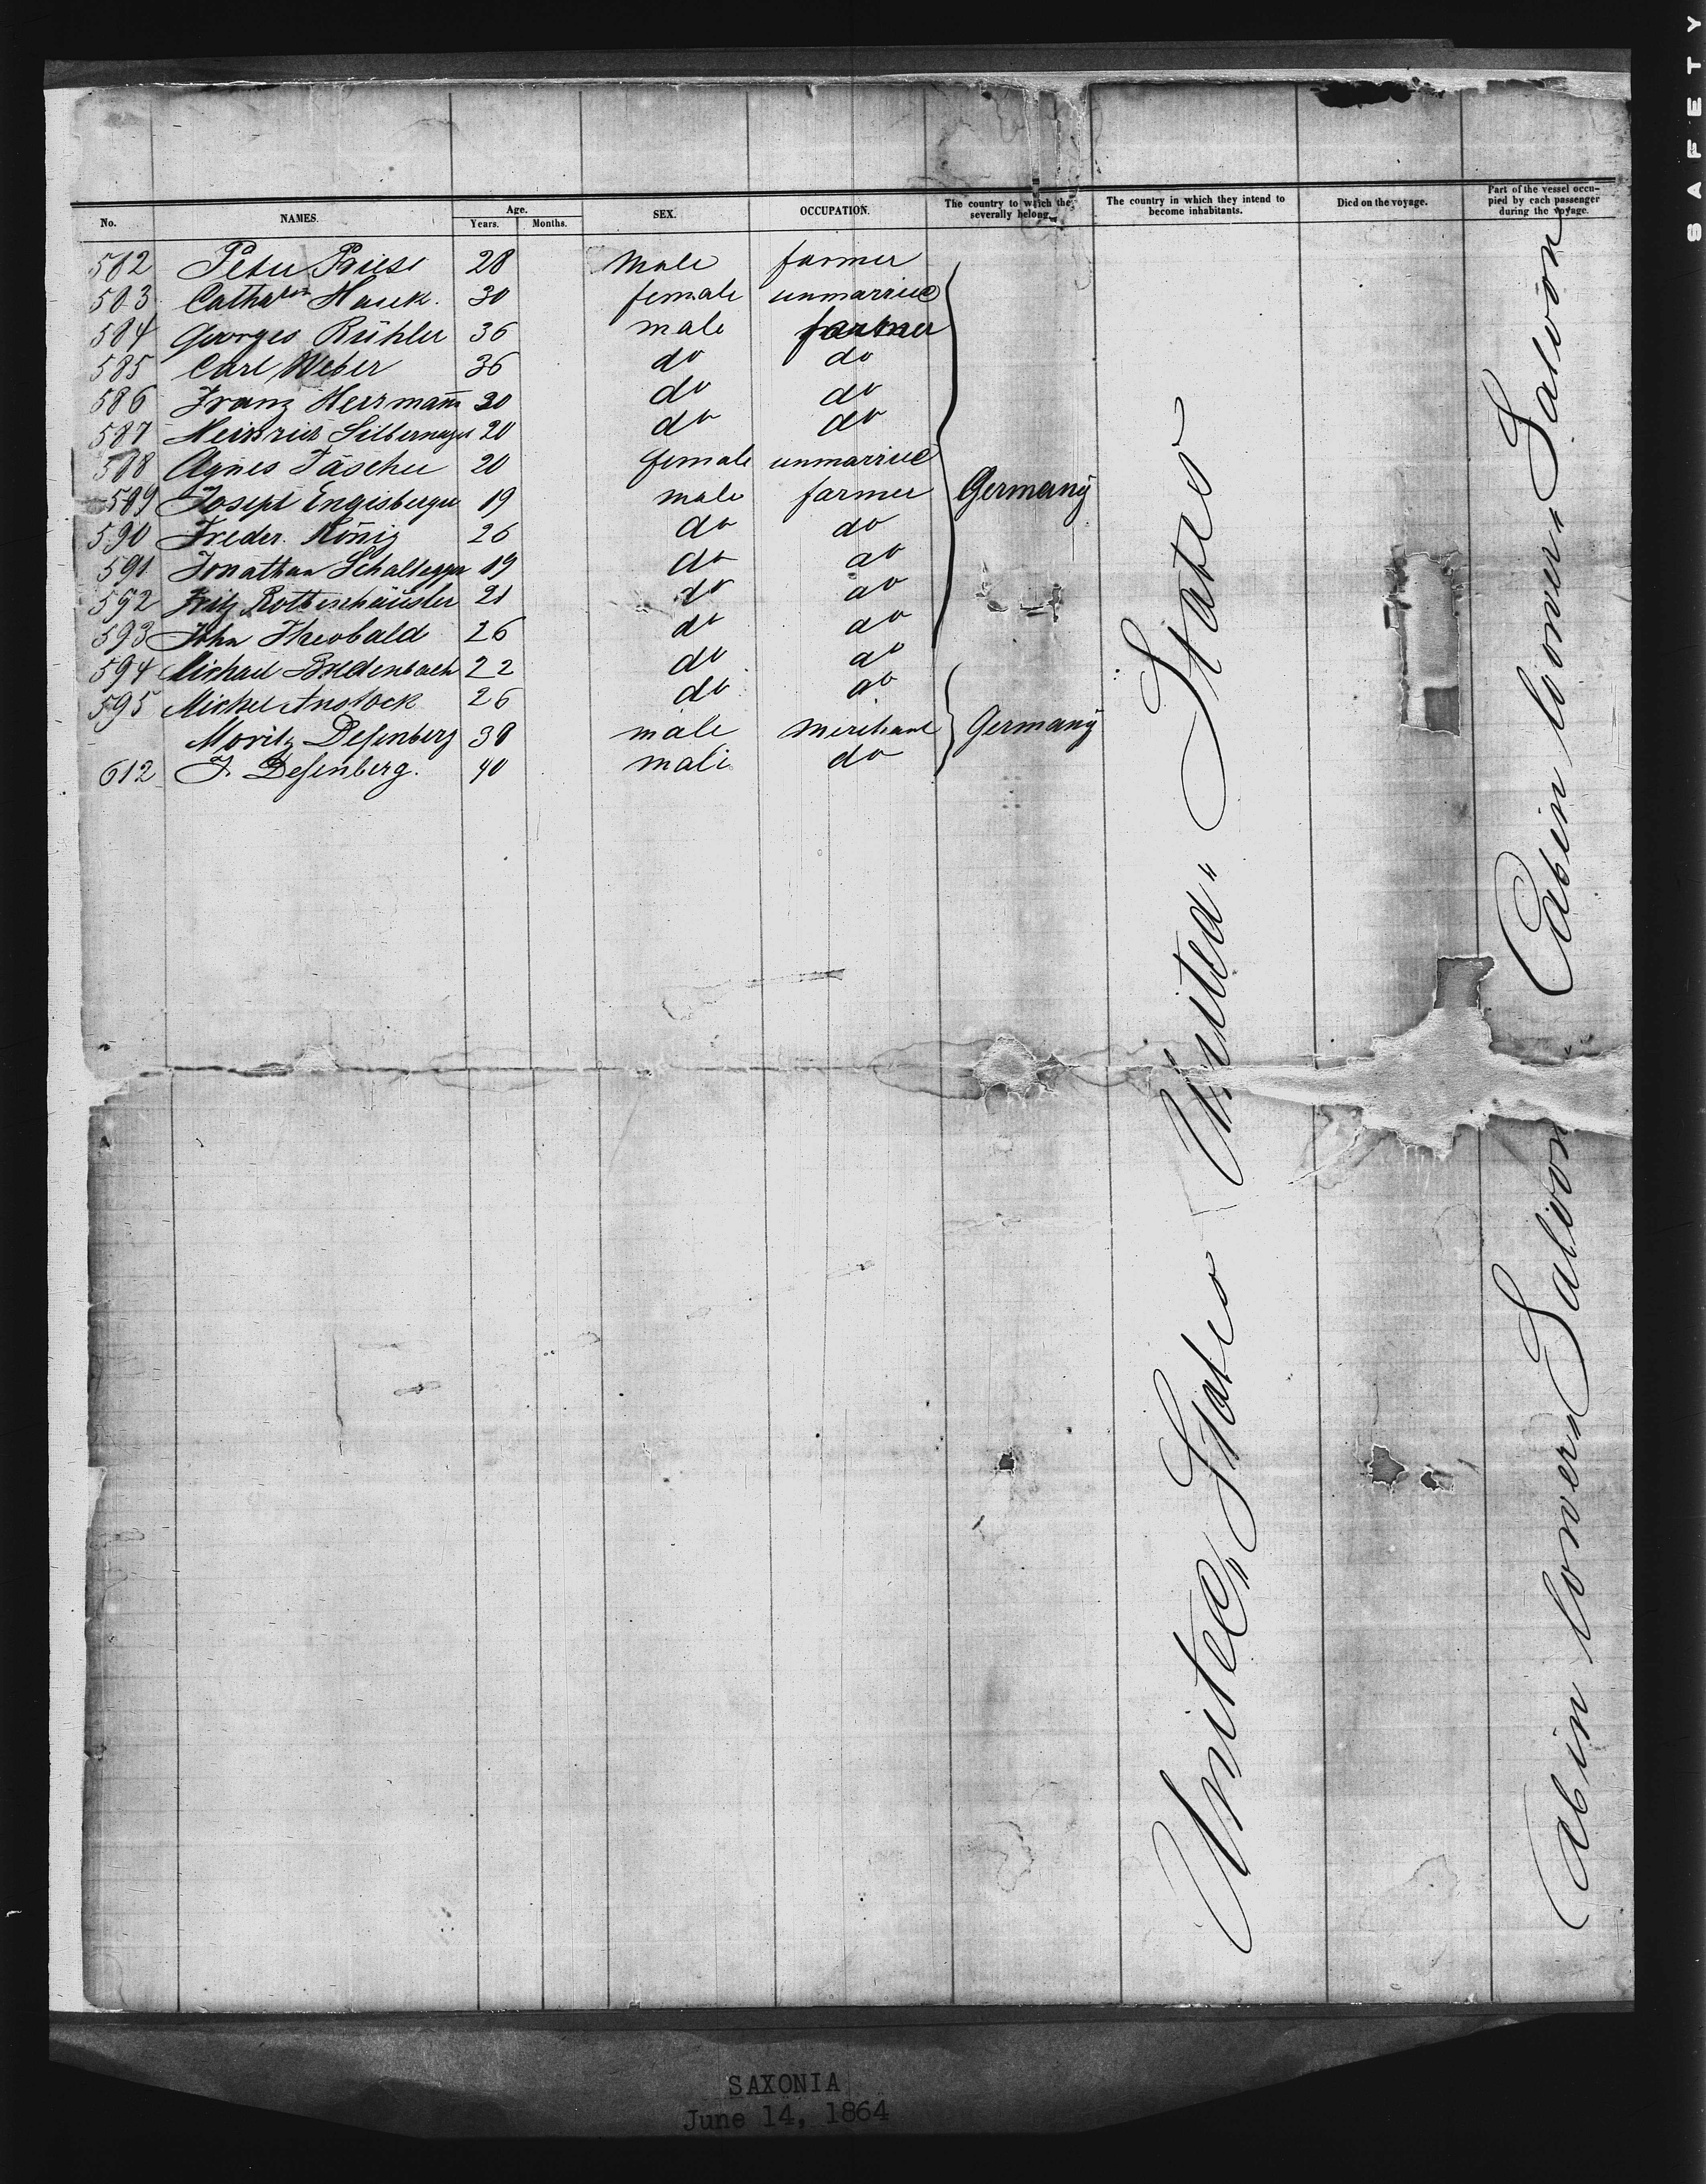 SAFETY
No. NAMES. Age. Years. Months. SEX. OCCUPATION. The country to which they severally belong. The country in which they intend to become inhabitants. Died on the voyage. Part of the vessel occupied by each passenger during the voyage.
582 Peter Friess 28 Male farmer
583 Catharin Hauk. 30 female unmarried
584 Georges Rühler 36 male farmer
585 Carl Weber 36 do do
586 Franz Herrmann 30 do do
587 Heinrich Silbernagel 20 do do
588 Agnes Täscher 20 female unmarried
589 Joseph Engesberger 19 male farmer Germany
590 Freder. König 26 do do
591 Jonathan Schaltegger 19 do do
592 Fritz Rottenhäusler 21 do do
593 John Theobald 26 do do
594 Michael Bredenbach 22 do do
595 Michel Anstock 26 do do
Moritz Desenberg 38 male merchant Germany
612 J. Desenberg. 40 male do
United States United States
Cabin lower Saloon Cabin lower Saloon
SAXONIA
June 14, 1864